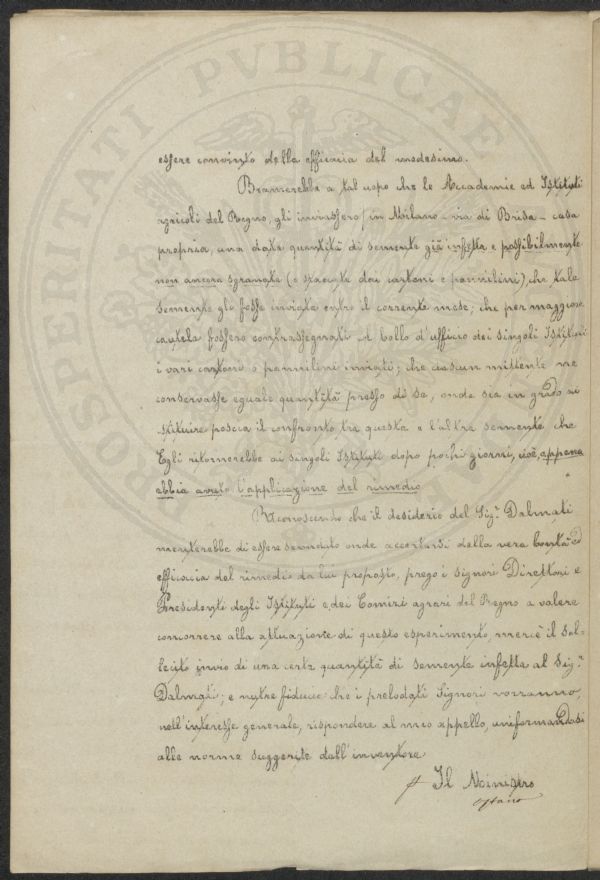 PROSPERITATI PVBLICAE
essere convinto della efficacia del medesimo.
Bramerebbe a tal uopo che le Accademie ed Istituti
agricoli del Regno, gli inviassero (in Milano - via di Brisa - casa
propria, una data quantità di semente già infetta e possibilmente
non ancora sgranata (o staccata dai cartoni e pannilini), che tale
semente gli fosse inviata entro il corrente mese; che per maggiore
cautela fossero contrassegnati col bollo d'ufficio dei singoli Istituti
i vari cartoni o pannilini inviati; che ciascun mittente ne
conservasse eguale quantità presso di se, onde sia in grado di
istituire poscia il confronto tra questa e l'altra semente che
Egli ritornerebbe ai singoli Istituti dopo pochi giorni, cioè, appena
abbia avuto l'applicazione del rimedio.
Riconoscendo che il desiderio del Sig.r Dalmati
meriterebbe di essere secondato onde accertarsi della vera bontà ed
efficacia del rimedio da lui proposto, prego i signori Direttori e
Presidenti degli Istituti e dei Comizi agrari del Regno a volere
concorrere alla attuazione di questo esperimento, mercè il sol-
lecito invio di una certa quantità di semente infetta al Sig.r
Dalmati; e nutre fiducia che i prelodati Signori vorranno,
nell'interesse generale, rispondere al mio appello, uniformandosi
alle norme suggerite dall'inventore.
Il Ministro